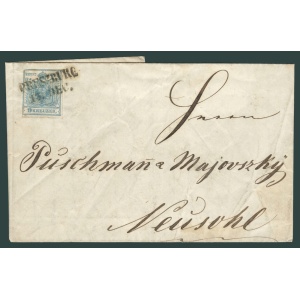 PRESSBURG
DEC.
Herrn
Puschmann & Majovszky
Neusohl